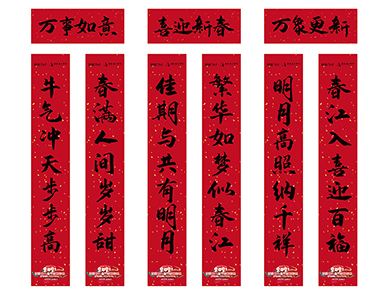 万事如意
喜迎新春
万象更新
春江入喜迎百福
明月高照纳千祥
繁华如梦似春江
佳期与共有明月
春满人间岁岁甜
牛气冲天步步高